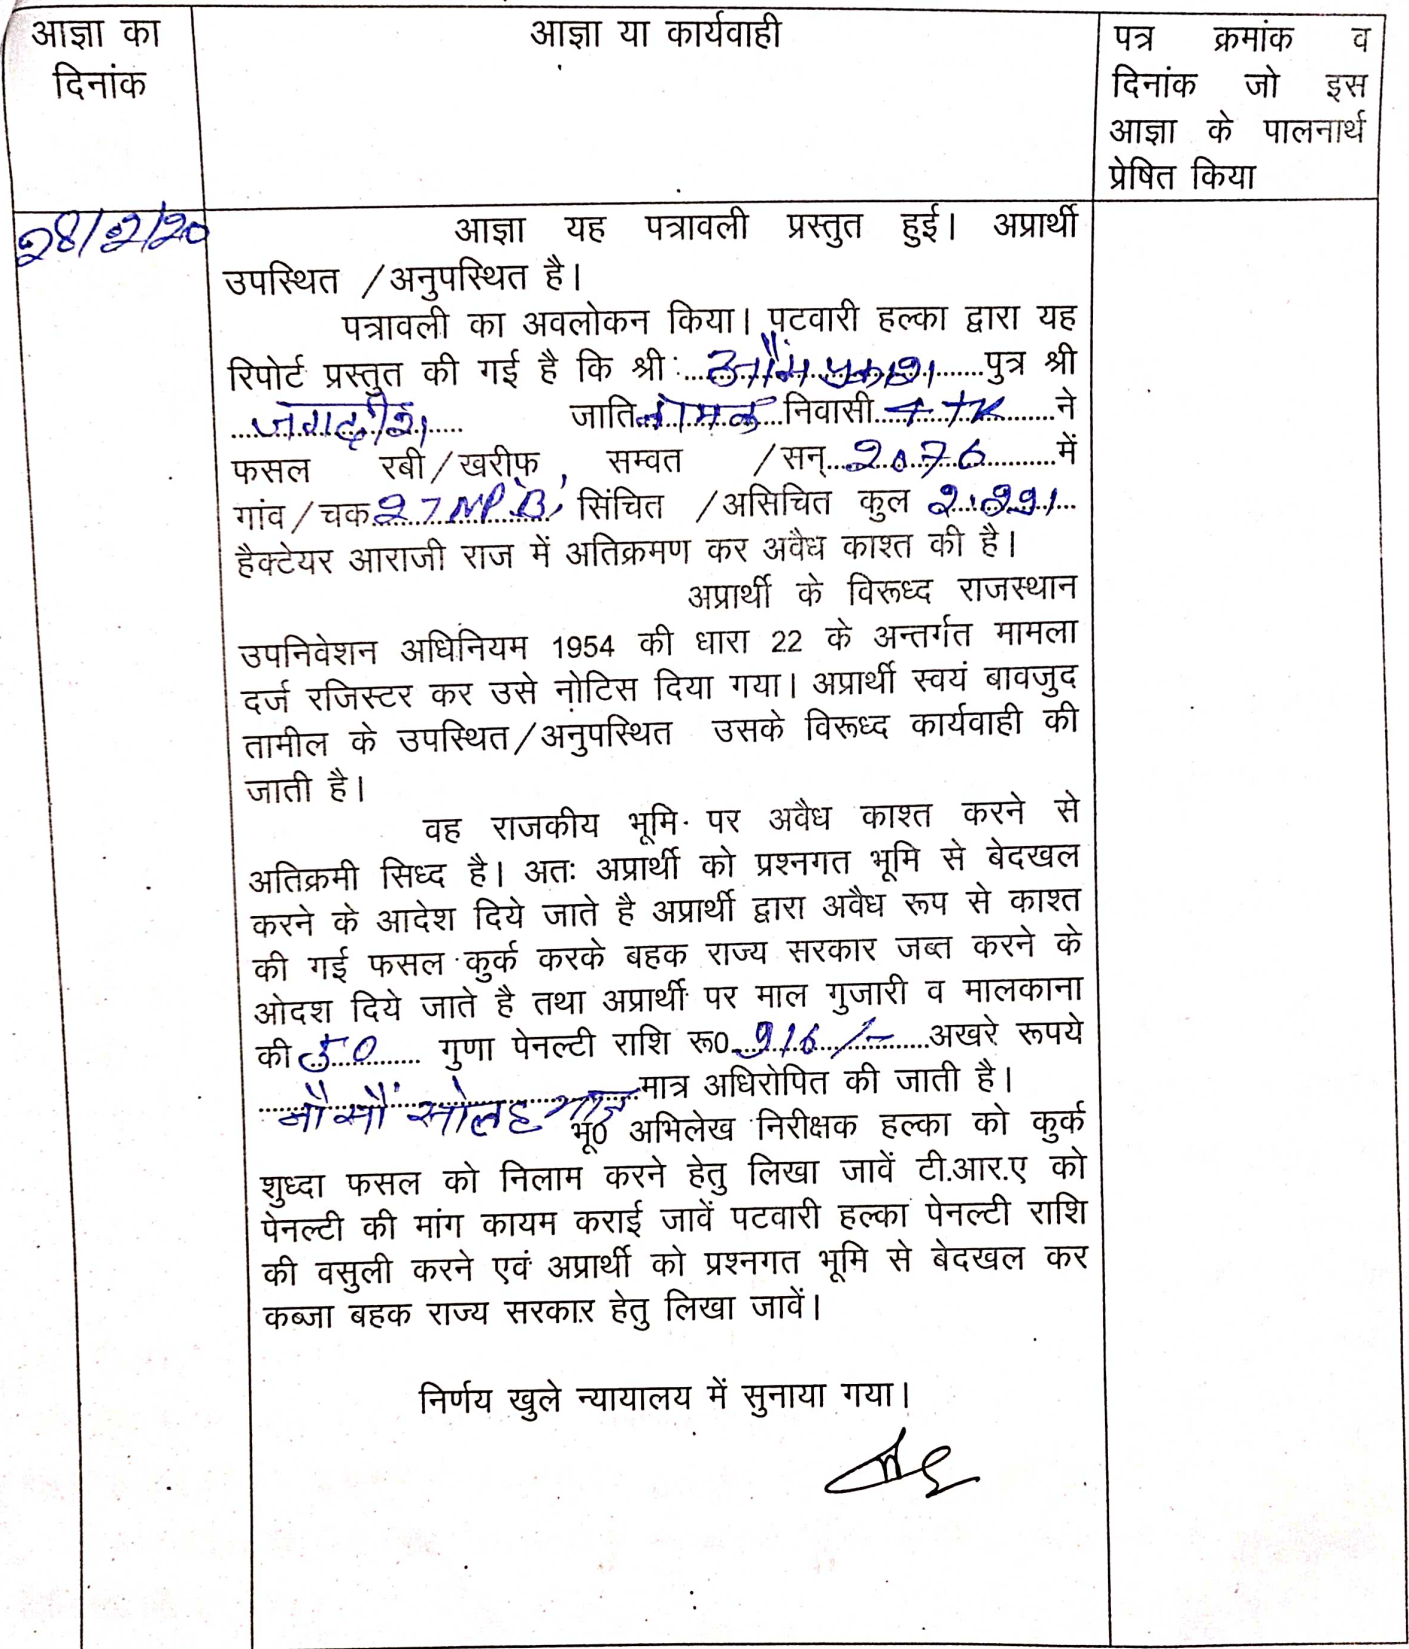 आज्ञा का
दिनांक
आज्ञा या कार्यवाही
पत्र क्रमांक व
दिनांक जो इस
आज्ञा के पालनार्थ
प्रेषित किया
28/2/20
आज्ञा यह पत्रावली प्रस्तुत हुई। अप्रार्थी
उपस्थित /अनुपस्थित है।
पत्रावली का अवलोकन किया। पटवारी हल्का द्वारा यह
रिपोर्ट प्रस्तुत की गई है कि श्री ओम प्रकाश पुत्र श्री
जगदीश जाति निवासी ने
फसल रबी/खरीफ, सम्वत /सन् 2076 में
गांव/चक 27 NP B, सिंचित /असिचित कुल 2.291
हैक्टेयर आराजी राज में अतिक्रमण कर अवैध काश्त की है।
अप्रार्थी के विरूध्द राजस्थान
उपनिवेशन अधिनियम 1954 की धारा 22 के अन्तर्गत मामला
दर्ज रजिस्टर कर उसे नोटिस दिया गया। अप्रार्थी स्वयं बावजुद
तामील के उपस्थित/अनुपस्थित उसके विरूध्द कार्यवाही की
जाती है।
वह राजकीय भूमि पर अवैध काश्त करने से
अतिक्रमी सिध्द है। अतः अप्रार्थी को प्रश्नगत भूमि से बेदखल
करने के आदेश दिये जाते है अप्रार्थी द्वारा अवैध रूप से काश्त
की गई फसल कुर्क करके बहक राज्य सरकार जब्त करने के
ओदश दिये जाते है तथा अप्रार्थी पर माल गुजारी व मालकाना
की 50 गुणा पेनल्टी राशि रू0 916/- अखरे रूपये
नौ सौ सोलह मात्र मात्र अधिरोपित की जाती है।
भू0 अभिलेख निरीक्षक हल्का को कुर्क
शुध्दा फसल को निलाम करने हेतु लिखा जावें टी.आर.ए को
पेनल्टी की मांग कायम कराई जावें पटवारी हल्का पेनल्टी राशि
की वसुली करने एवं अप्रार्थी को प्रश्नगत भूमि से बेदखल कर
कब्जा बहक राज्य सरकार हेतु लिखा जावें।
निर्णय खुले न्यायालय में सुनाया गया।